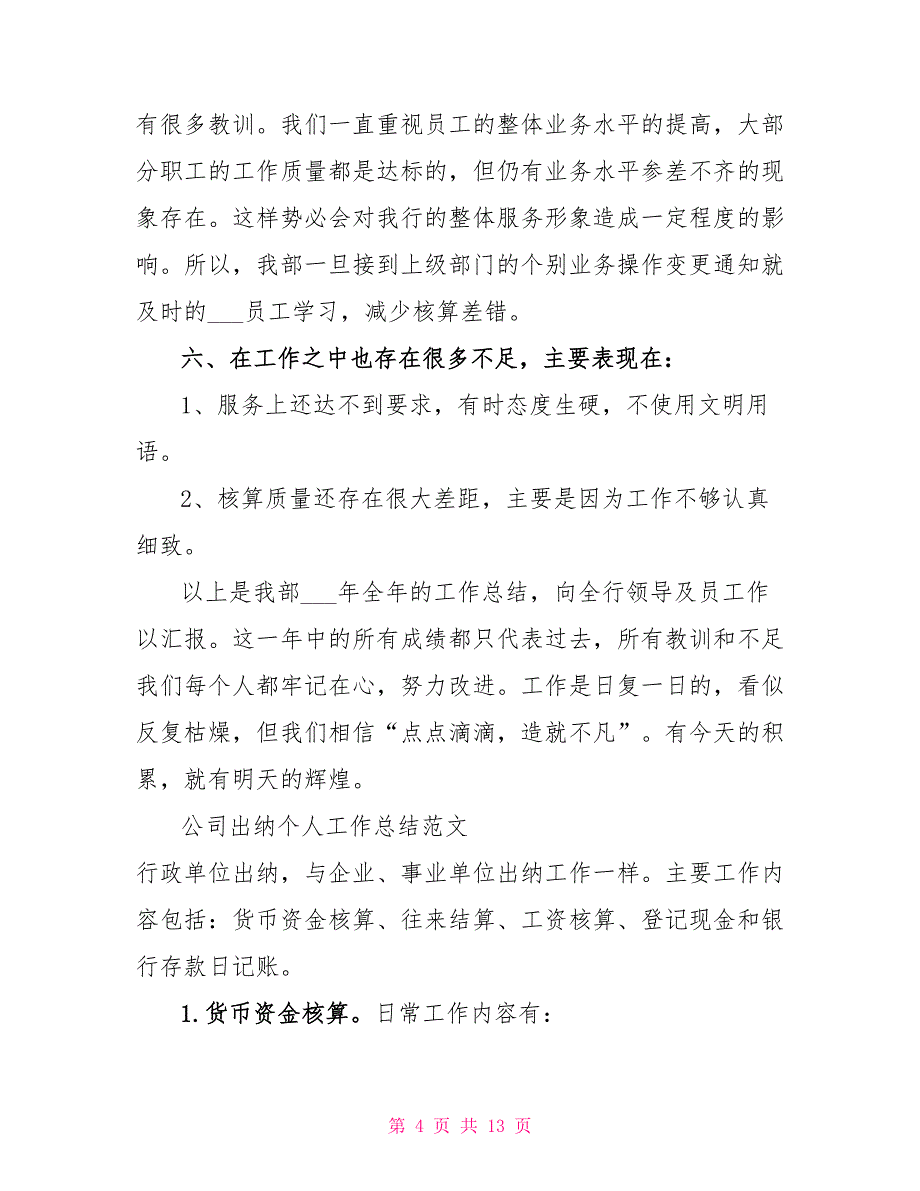 有很多教训。我们一直重视员工的整体业务水平的提高，大部
分职工的工作质量都是达标的，但仍有业务水平参差不齐的现
象存在。这样势必会对我行的整体服务形象造成一定程度的影
响。所以，我部一旦接到上级部门的个别业务操作变更通知就
及时的___员工学习，减少核算差错。
六、在工作之中也存在很多不足，主要表现在：
1、服务上还达不到要求，有时态度生硬，不使用文明用
语。
2、核算质量还存在很大差距，主要是因为工作不够认真
细致。
以上是我部___年全年的工作总结，向全行领导及员工作
以汇报。这一年中的所有成绩都只代表过去，所有教训和不足
我们每个人都牢记在心，努力改进。工作是日复一日的，看似
反复枯燥，但我们相信“点点滴滴，造就不凡”。有今天的积
累，就有明天的辉煌。
公司出纳个人工作总结范文
行政单位出纳，与企业、事业单位出纳工作一样。主要工作内
容包括：货币资金核算、往来结算、工资核算、登记现金和银
行存款日记账。
1.货币资金核算。日常工作内容有：
第 4 页 共 13 页